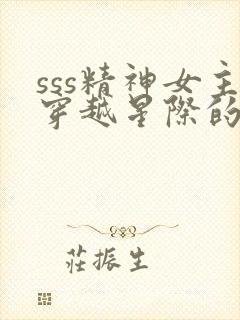 sss精神女主
穿越星際的
莊振生